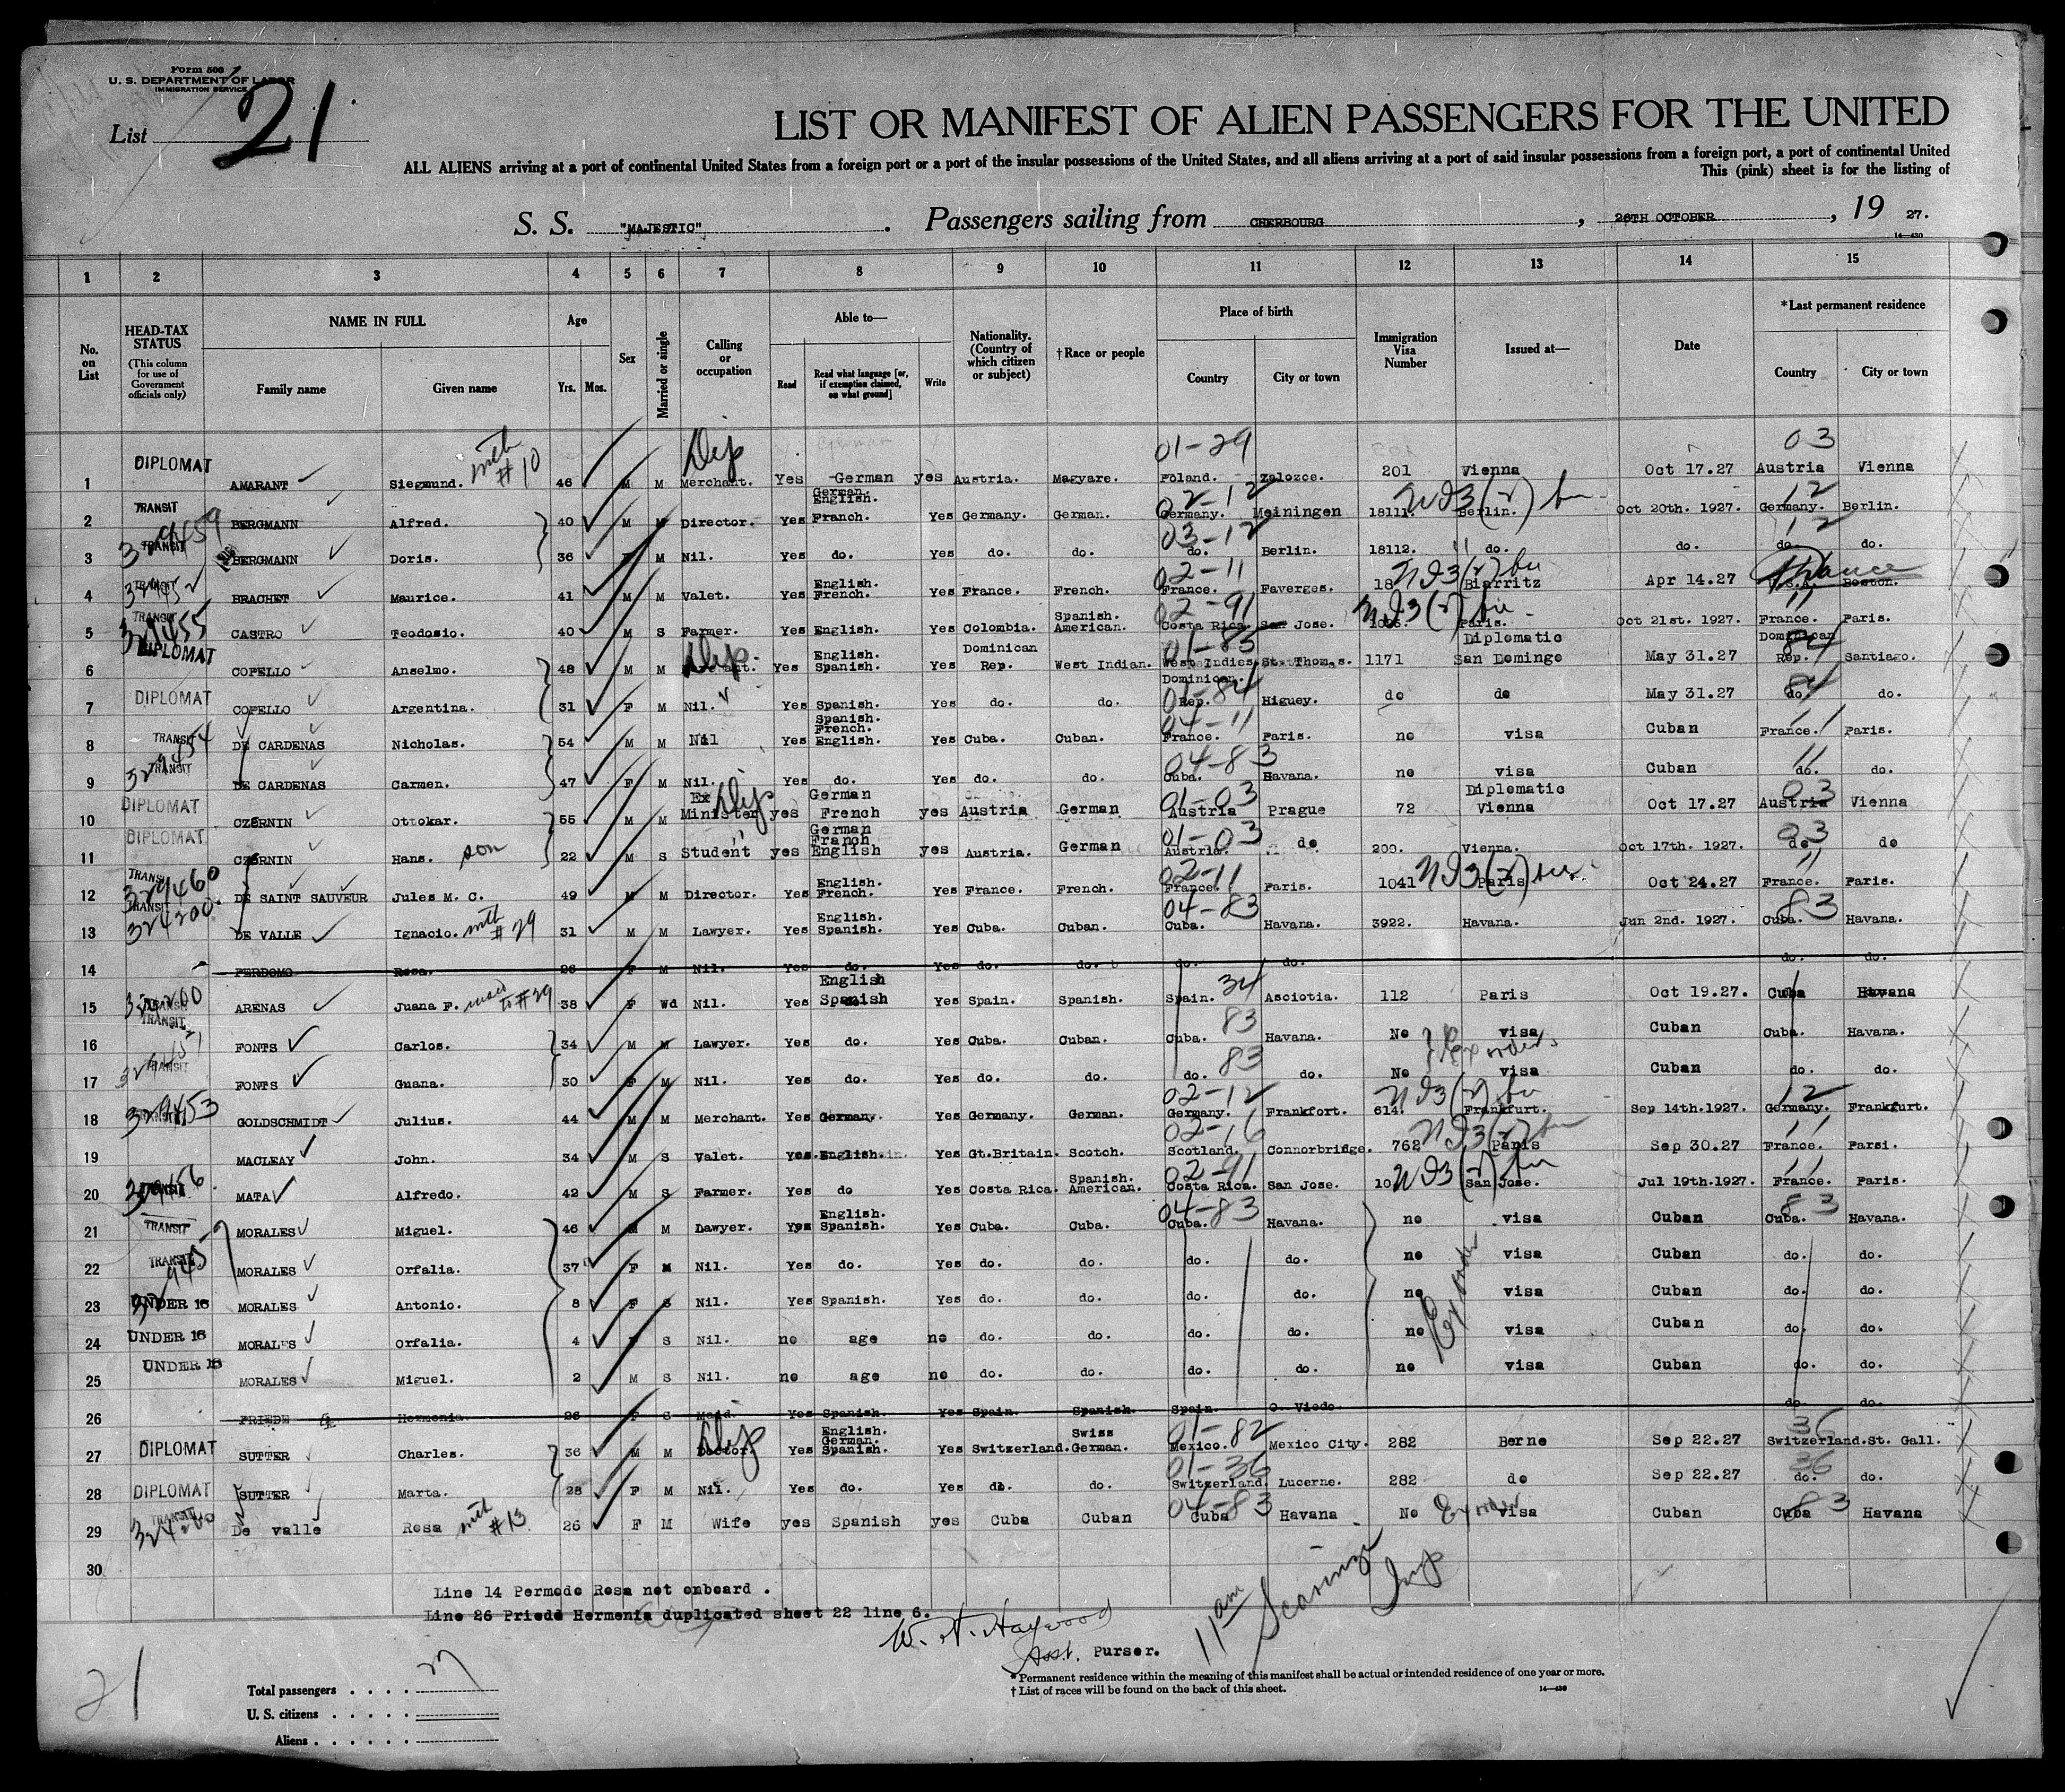 Form 500
U. S. DEPARTMENT OF LABOR
IMMIGRATION SERVICE
List 21
LIST OR MANIFEST OF ALIEN PASSENGERS FOR THE UNITED
ALL ALIENS arriving at a port of continental United States from a foreign port or a port of the insular possessions of the United States, and all aliens arriving at a port of said insular possessions from a foreign port, a port of continental United
This (pink) sheet is for the listing of
S. S. "MAJESTIC". Passengers sailing from CHERBOURG, 26TH OCTOBER, 19 27.
14—430
1 2 3 4 5 6 7 8 9 10 11 12 13 14 15
No. on List HEAD-TAX STATUS (This column for use of Government officials only) NAME IN FULL Family name Given name Age Yrs. Mos. Sex Married or single Calling or occupation Able to— Read Read what language [or, if exemption claimed, on what ground] Write Nationality. (Country of which citizen or subject) †Race or people Place of birth Country City or town Immigration Visa Number Issued at— Date *Last permanent residence Country City or town
1 DIPLOMAT AMARANT Siegmund. with #10 46 M M Merchant. Dip Yes German yes Austria. Magyare. 01-29 Poland. Zalozce. 201 Vienna Oct 17.27 03 Austria Vienna
2 TRANSIT BERGMANN Alfred. 40 M M Director. Yes German. English. Franch. Yes Germany. German. 02-12 Germany. Meiningen 18111. Berlin. Oct 20th. 1927. 12 Germany. Berlin.
3 TRANSIT BERGMANN Doris. 36 F M Nil. Yes do. Yes do. do. 03-12 do. Berlin. 18112. do. do. 12 do. do.
4 TRANSIT BRACHET Maurice. 41 M M Valet. Yes English. French. Yes France. French. 02-11 France. Faverges. Biarritz Apr 14.27 France U.S.A. Boston.
5 TRANSIT 329455 CASTRO Teodosio. 40 M S Farmer. Yes English. Yes Colombia. Spanish. American. 02-91 Costa Rica. San Jose. Paris. Oct 21st. 1927. 11 France. Paris.
6 DIPLOMAT COPELLO Anselmo. 48 M M Dip. Yes English. Spanish. Yes Dominican Rep. West Indian. 01-85 West Indies St. Thomas. 1171 Diplomatic San Domingo May 31.27 84 Dominican Rep. Santiago.
7 DIPLOMAT COPELLO Argentina. 31 F M Nil. Yes Spanish. Yes do. do. 01-84 Dominican. Rep. Higuey. do do May 31.27 84 do. do.
8 TRANSIT 329454 DE CARDENAS Nicholas. 54 M M Nil Yes Spanish. French. English. Yes Cuba. Cuban. 04-11 France. Paris. no visa Cuban 11 France. Paris.
9 TRANSIT DE CARDENAS Carmen. 47 F M Nil. Yes do. Yes do. do. 04-83 Cuba. Havana. no visa Cuban 11 do. do.
10 DIPLOMAT CZERNIN Ottokar. 55 M M Ex Minister Dip yes German French yes Austria German 01-03 Austria Prague 72 Diplomatic Vienna Oct 17.27 03 Austria Vienna
11 DIPLOMAT CZERNIN Hans. son 22 M S Student " yes German French English yes Austria. German 01-03 Austria. do 200. Vienna. Oct 17th. 1927. 03 do do
12 TRANSIT 329460 DE SAINT SAUVEUR Jules M. C. 49 M M Director. Yes English. French. Yes France. French. 02-11 France. Paris. 1041 Paris Oct 24.27 11 France. Paris.
13 TRANSIT 324200. DE VALLE Ignacio. with #29 31 M M Lawyer. Yes English. Spanish. Yes Cuba. Cuban. 04-83 Cuba. Havana. 3922. Havana. Jun 2nd. 1927. 83 Cuba. Havana.
14 PERDOMO Rosa. 26 F M Nil. Yes do. Yes do. do. do. do. do. do.
15 TRANSIT ARENAS Juana F. to #29 38 F Wd Nil. Yes English Spanish Yes Spain. Spanish. 34 Spain. Asciotia. 112 Paris Oct 19.27. Cuba Havana
16 TRANSIT FONTS Carlos. 34 M M Lawyer. Yes do. Yes Cuba. Cuban. 83 Cuba. Havana. No visa Cuban Cuba. Havana.
17 TRANSIT FONTS Guana. 30 F M Nil. Yes do. Yes do. do. 83 do. do. No visa Cuban do. do.
18 329453 GOLDSCHMIDT Julius. 44 M M Merchant. Yes Germany. Yes Germany. German. 02-12 Germany. Frankfort. 614. Frankfurt. Sep 14th.1927. 12 Germany. Frankfurt.
19 MACLEAY John. 34 M S Valet. Yes. English. Yes Gt.Britain. Scotch. 02-16 Scotland. Connorbridge. 762 Paris Sep 30.27 11 France. Parsi.
20 TRANSIT MATA Alfredo. 42 M S Farmer. Yes do Yes Costa Rica. Spanish. American. 02-91 Costa Rica. San Jose. San Jose. Jul 19th.1927. 11 France. Paris.
21 TRANSIT MORALES Miguel. 46 M M Dawyer. Yes English. Spanish. Yes Cuba. Cuba. 04-83 Cuba. Havana. no visa Cuban 83 Cuba. Havana.
22 TRANSIT MORALES Orfalia. 37 F M Nil. Yes do. Yes do. do. do. do. no visa Cuban do. do.
23 UNDER 16 MORALES Antonio. 8 F S Nil. Yes Spanish. Yes do. do. do. do. no visa Cuban do. do.
24 UNDER 16 MORALES Orfalia. 4 F S Nil. no age no do. do. do. do. no visa Cuban do. do.
25 UNDER 16 MORALES Miguel. 2 M S Nil. no age no do. do. do. do. no visa Cuban do. do.
26 PRIEDE Hermenia. 26 F S Maid. Yes Spanish. Yes Spain. Spanish. Spain. O. Viedo do. do.
27 DIPLOMAT SUTTER Charles. 36 M M Doctor. Dip Yes English. German. Spanish. Yes Switzerland. Swiss German. 01-82 Mexico. Mexico City. 282 Berne Sep 22.27 36 Switzerland. St. Gall.
28 DIPLOMAT SUTTER Marta. 28 F M Nil. Yes do. Yes do. do. 01-36 Switzerland. Lucerne. 282 do Sep 22.27 36 do. do.
29 TRANSIT De valle Rosa with #13 26 F M Wife yes Spanish yes Cuba Cuban 04-83 Cuba Havana No visa Cuban 83 Cuba Havana
30
Line 14 Permodo Rosa not onboard .
Line 26 Priede Hermenia duplicated sheet 22 line 6.
W. A. Haywood
Asst. Purser.
11 am Insp
* Permanent residence within the meaning of this manifest shall be actual or intended residence of one year or more.
† List of races will be found on the back of this sheet.
14—430
21
Total passengers
U. S. citizens
Aliens